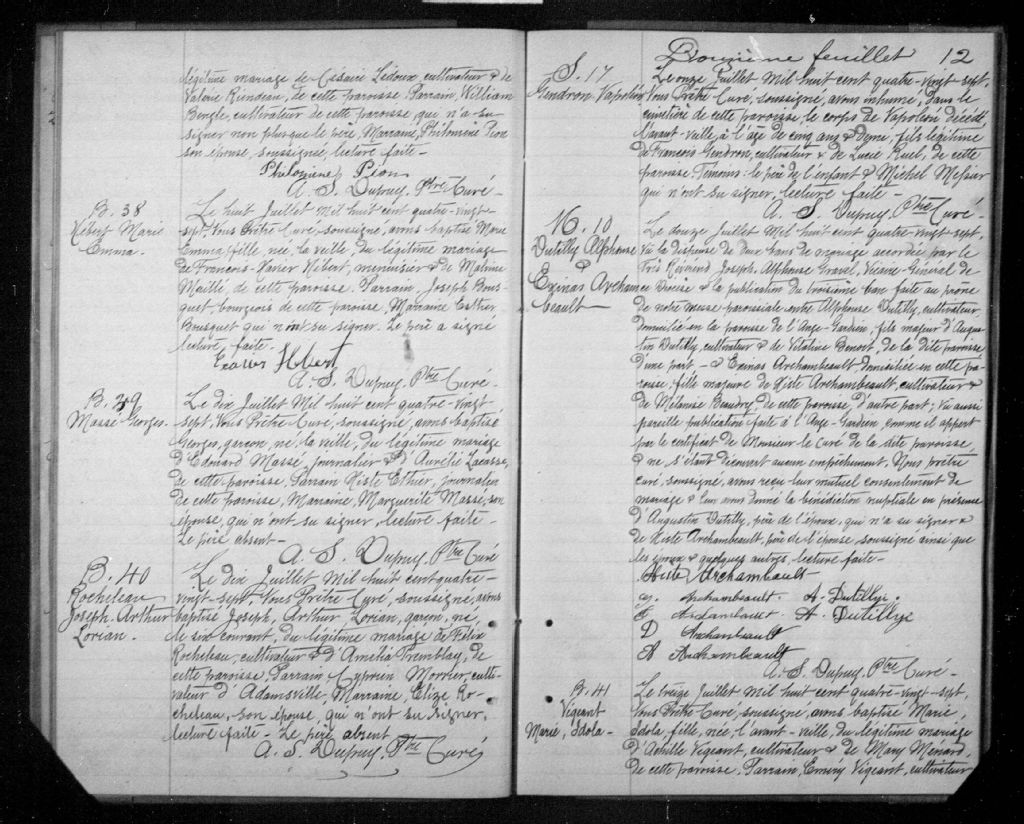 légitime mariage de Césaire Ledoux cultivateur & de
Valerie Riendeau, de cette paroisse. Parrain, William
cultivateur de cette paroisse qui n'a su
signer non plus que le père, Marraine, Philomène Pion
son épouse, soussignée, lecture faite -
Philomène Pion
A. S. Dupuy, Ptre Curé -
B. 38
Hébert Marie
Emma -
Le huit Juillet mil huit cent quatre-vingt-
sept, Nous Prêtre Curé, soussigné, avons baptisé Marie
Emma, fille, née, la veille, du légitime mariage
de Francois-Xavier Hébert, menuisier & de Malina
de cette paroisse. Parrain, Joseph Bous-
quet bourgeois de cette paroisse, Marraine Esther
Bousquet qui n'ont su signer. Le père a signé
lecture, faite -
A. S. Dupuy, Ptre Curé -
B. 39
Massé Georges.
Le dix Juillet Mil huit cent quatre-vingt-
sept, Nous Prêtre Curé, soussigné, avons baptisé
Georges, garçon, né, la veille, du légitime mariage
d'Edouard Massé, journalier & d'Aurélie Lacasse,
de cette paroisse. Parrain Xiste Ethier, journalier
de cette paroisse, Marraine, Marguerite Massé, son
épouse, qui n'ont su signer, lecture faite -
Le père absent -
A. S. Dupuy Ptre Curé
B. 40
Rocheleau
Joseph-Arthur
Lorian.
Le dix Juillet mil huit cent quatre-
vingt-sept, Nous Prêtre Curé, soussigné, avons
baptisé Joseph, Arthur Lorian, garçon, né,
le six courant, du légitime mariage de Félix
Rocheleau, cultivateur & d'Amélia Tremblay, de
cette paroisse, Parrain Cyprien Morrier, culti-
vateur d'Adamsville, Marraine, Elize Ro-
cheleau, son épouse, qui n'ont su signer,
lecture faite - Le père absent
A. S. Dupuy Ptre Curé
Douzième feuillet 12
S. 17
Gendron Napoléon
Le onze Juillet Mil huit cent quatre-vingt-sept,
Nous Prêtre Curé, soussigné, avons inhumé, dans le
cimetière de cette paroisse, le corps de Napoléon décédé,
l'avant-veille, à l'âge de cinq ans & demi, fils légitime
de Francois Gendron, cultivateur & de Lucie Ruel, de cette
paroisse. Témoins: le père de l'enfant & Michel Messier
qui n'ont su signer, lecture faite -
A. S. Dupuy, Ptre Curé -
M. 10
Dutilly Alphonse
&
Exinas Archam-
beault
Le douze Juillet Mil huit cent quatre-vingt sept,
Vu la dispense de deux bans de mariage accordée par le
Très Révérend Joseph, Alphonse Gravel, Vicaire-Général de
ce Diocèse & la publication du troisième ban faite au prône
de notre messe paroissiale entre Alphonse Dutilly, cultivateur,
domicilié en la paroisse de l'Ange-Gardien, fils majeur d'Augus-
tin Dutilly, cultivateur & de Vitaline Benoit, de la dite paroisse
d'une part - & Exinas Archambeault domiciliée en cette pa-
roisse, fille majeure de Xiste Archambeault, cultivateur &
de Mélanise Beaudry, de cette paroisse, d'autre part; Vu aussi
pareille publication faite à l'Ange-Gardien, comme il appert
par le certificat de Monsieur le Curé de la dite paroisse
& ne s'étant découvert aucun empêchement, Nous prêtre
curé, soussigné, avons reçu leur mutuel consentement de
mariage & leur avons donné la bénédiction nuptiale en présence
d'Augustin Dutilly, père de l'époux, qui n'a su signer &
de Xiste Archambeault, père de l'épouse, soussigné ainsi que
les époux & quelques autres, lecture faite -
Xiste Archambault
Archambeault A. Dutillye.
Archambault A. Dutillye
D Archambeault
Archambeault
A. S. Dupuy, Ptre Curé -
B. 41
Vigeant
Marie, Idola -
Le treize Juillet Mil huit cent quatre-vingt-sept,
Nous Prêtre Curé, soussigné, avons baptisé Marie
Idola, fille, née, l'avant-veille, du légitime mariage
d'Achille Vigeant, cultivateur & de Mary Ménard,
de cette paroisse, Parrain, Emery Vigeant, cultivateur